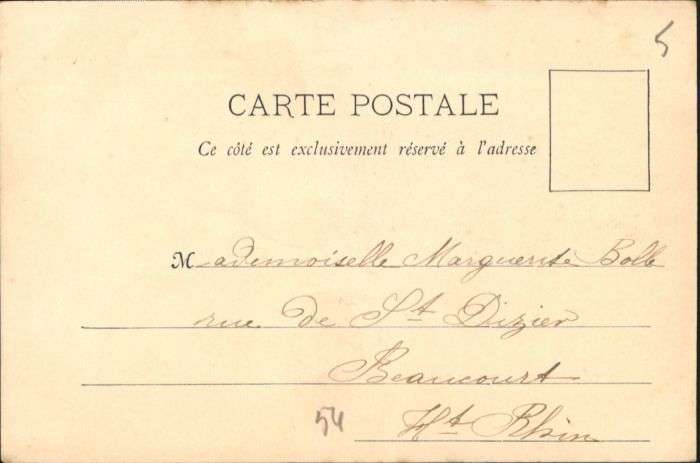 5
CARTE POSTALE
Ce côté est exclusivement réservé à l'adresse
Mademoiselle Marguerite Bolle
rue de St Dizier
Beaucourt
54
Ht Rhin